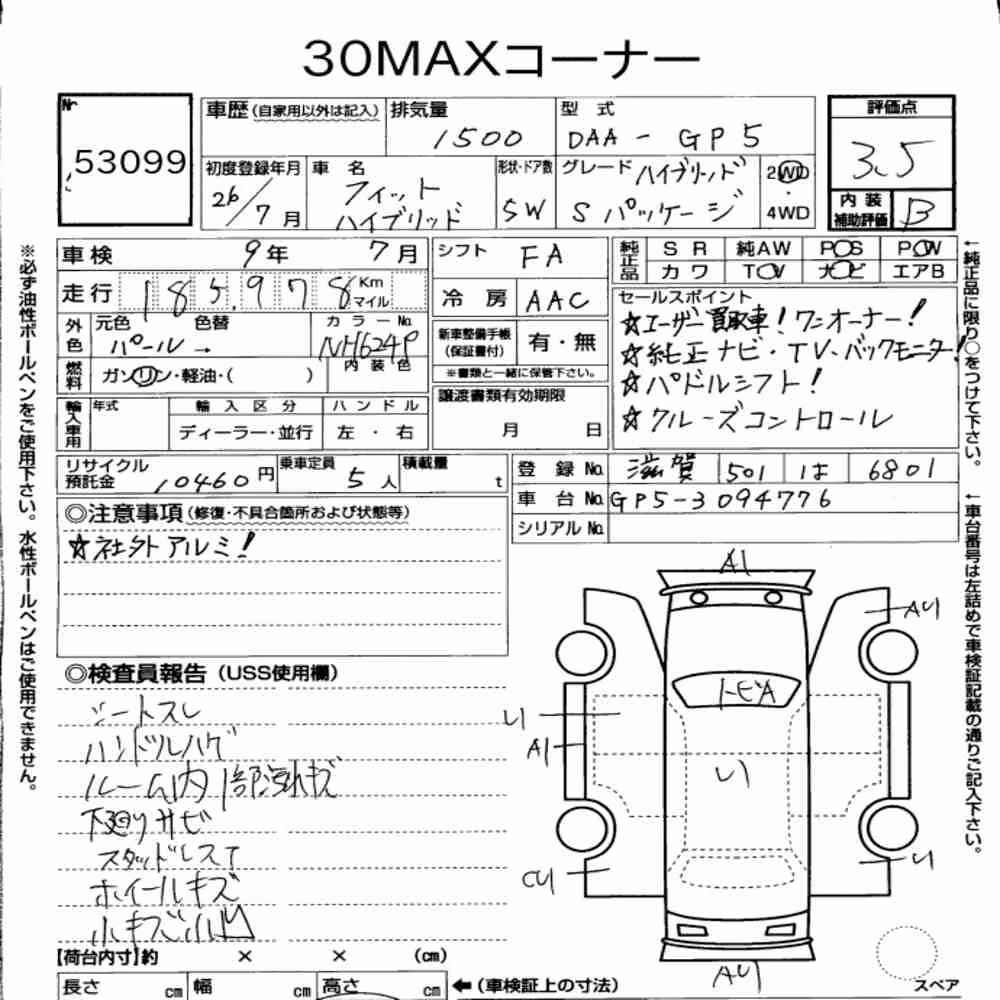 30MAXコーナー
№
53099
車歴(自家用以外は記入)
排気量
1500
型 式
DAA - GP5
評価点
3.5
初度登録年月
26/7月
車 名
フィット
ハイブリッド
形状・ドア数
5W
グレード ハイブリッド
Sパッケージ
2WD
・
4WD
内 装
補助評価
B
車検 9年 7月
シフト FA
純正品
SR 純AW PS PW
カワ TV ナビ エアB
走行 185,978 Km
マイル
冷房 AAC
セールスポイント
☆ユーザー買取車!ワンオーナー!
☆純正ナビ・TV・バックモニター!
☆パドルシフト!
☆クルーズコントロール
外色
元色 色替
パール →
カラーNo.
NH624P
新車整備手帳
(保証書付)
有・無
燃料
ガソリン・軽油・( )
内 装 色
※書類と一緒に保管下さい。
輸入車用
年式
輸入区分
ハンドル
ディーラー・並行
左 ・ 右
譲渡書類有効期限
月 日
リサイクル
預託金
10460円
乗車定員
5人
積載量
t
登 録 No. 滋賀 501 は 6801
車 台 No. GP5-3094776
シリアル No.
◎注意事項(修復・不具合箇所および状態等)
☆社外アルミ!
◎検査員報告(USS使用欄)
シートスレ
ハンドルハゲ
ルーム内1部汚れキズ
下廻りサビ
スタッドレスT
ホイールキズ
小キズ小凹
A1
AU
トビA
U
A1
U
CU
U
AU
【荷台内寸】約 × × (cm)
長さ cm
幅 cm
高さ cm
←(車検証上の寸法)
スペア
※必ず油性ボールペンをご使用下さい。水性ボールペンはご使用できません。
←純正品に限り○をつけて下さい。
←車台番号は左詰めで車検証記載の通りご記入下さい。